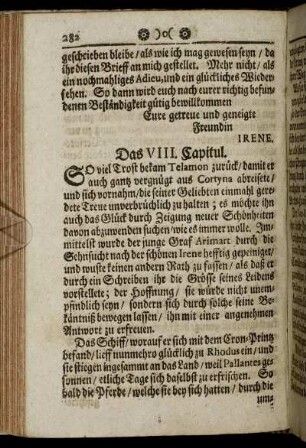 282 )o(
geschrieben bleibe/als wie ich mag gewesen seyn/da
ihr diesen Brieff an mich gestellet. Mehr nicht/als
ein nochmahliges Adieu, und ein glückliches Wieder-
sehen. So dann wird euch nach eurer richtig befun-
denen Beständigkeit gütig bewillkommen
Eure getreue und geneigte
Freundin
IRENE.
Das VIII. Capitul.
SO viel Trost bekam Telamon zurück/damit er
auch gantz vergnügt aus Cortyna abreisete/
und sich vornahm/die seiner Geliebten einmahl gere-
dete Treue unverbrüchlich zu halten; es möchte ihn
auch das Glück durch Zeigung neuer Schönheiten
davon abzuwenden suchen/wie es immer wolle. Im-
mittelst wurde der junge Graf Arimart durch die
Sehnsucht nach der schönen Irene hefftig gepeiniget/
und wuste keinen andern Rath zu fassen/als daß er
durch ein Schreiben ihr die Grösse seines Leidens
vorstellete; der Hoffnung/sie würde nicht unem-
pfindlich seyn/sondern sich durch solche seine Be-
käntniß bewegen lassen/ihn mit einer angenehmen
Antwort zu erfreuen.
Das Schiff/worauf er sich mit dem Cron-Printz
befand/lieff nunmehro glücklich zu Rhodus ein/und
sie stiegen ingesammt an das Land/weil Pallantes ge-
sonnen/etliche Tage sich daselbst zu erfrischen. So
bald die Pferde/welche sie bey sich hatten/durch die
un-